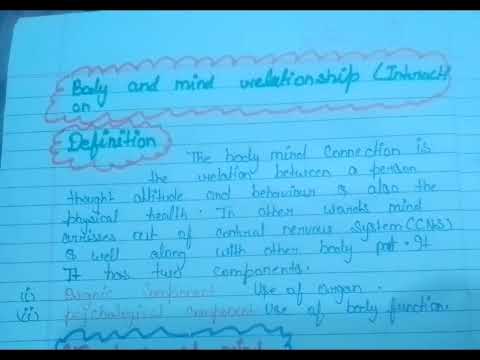 Body and mind relationship (Interact
on
Definition
The body mind Connection is
the relation between a person
thought attitude and behaviour & also the
physical health. In other words mind
arrises out of central nervous System (CNS)
& well along with other body part. It
It has two components.
(i) Organic Component Use of organ.
(ii) psychological component Use of body function.